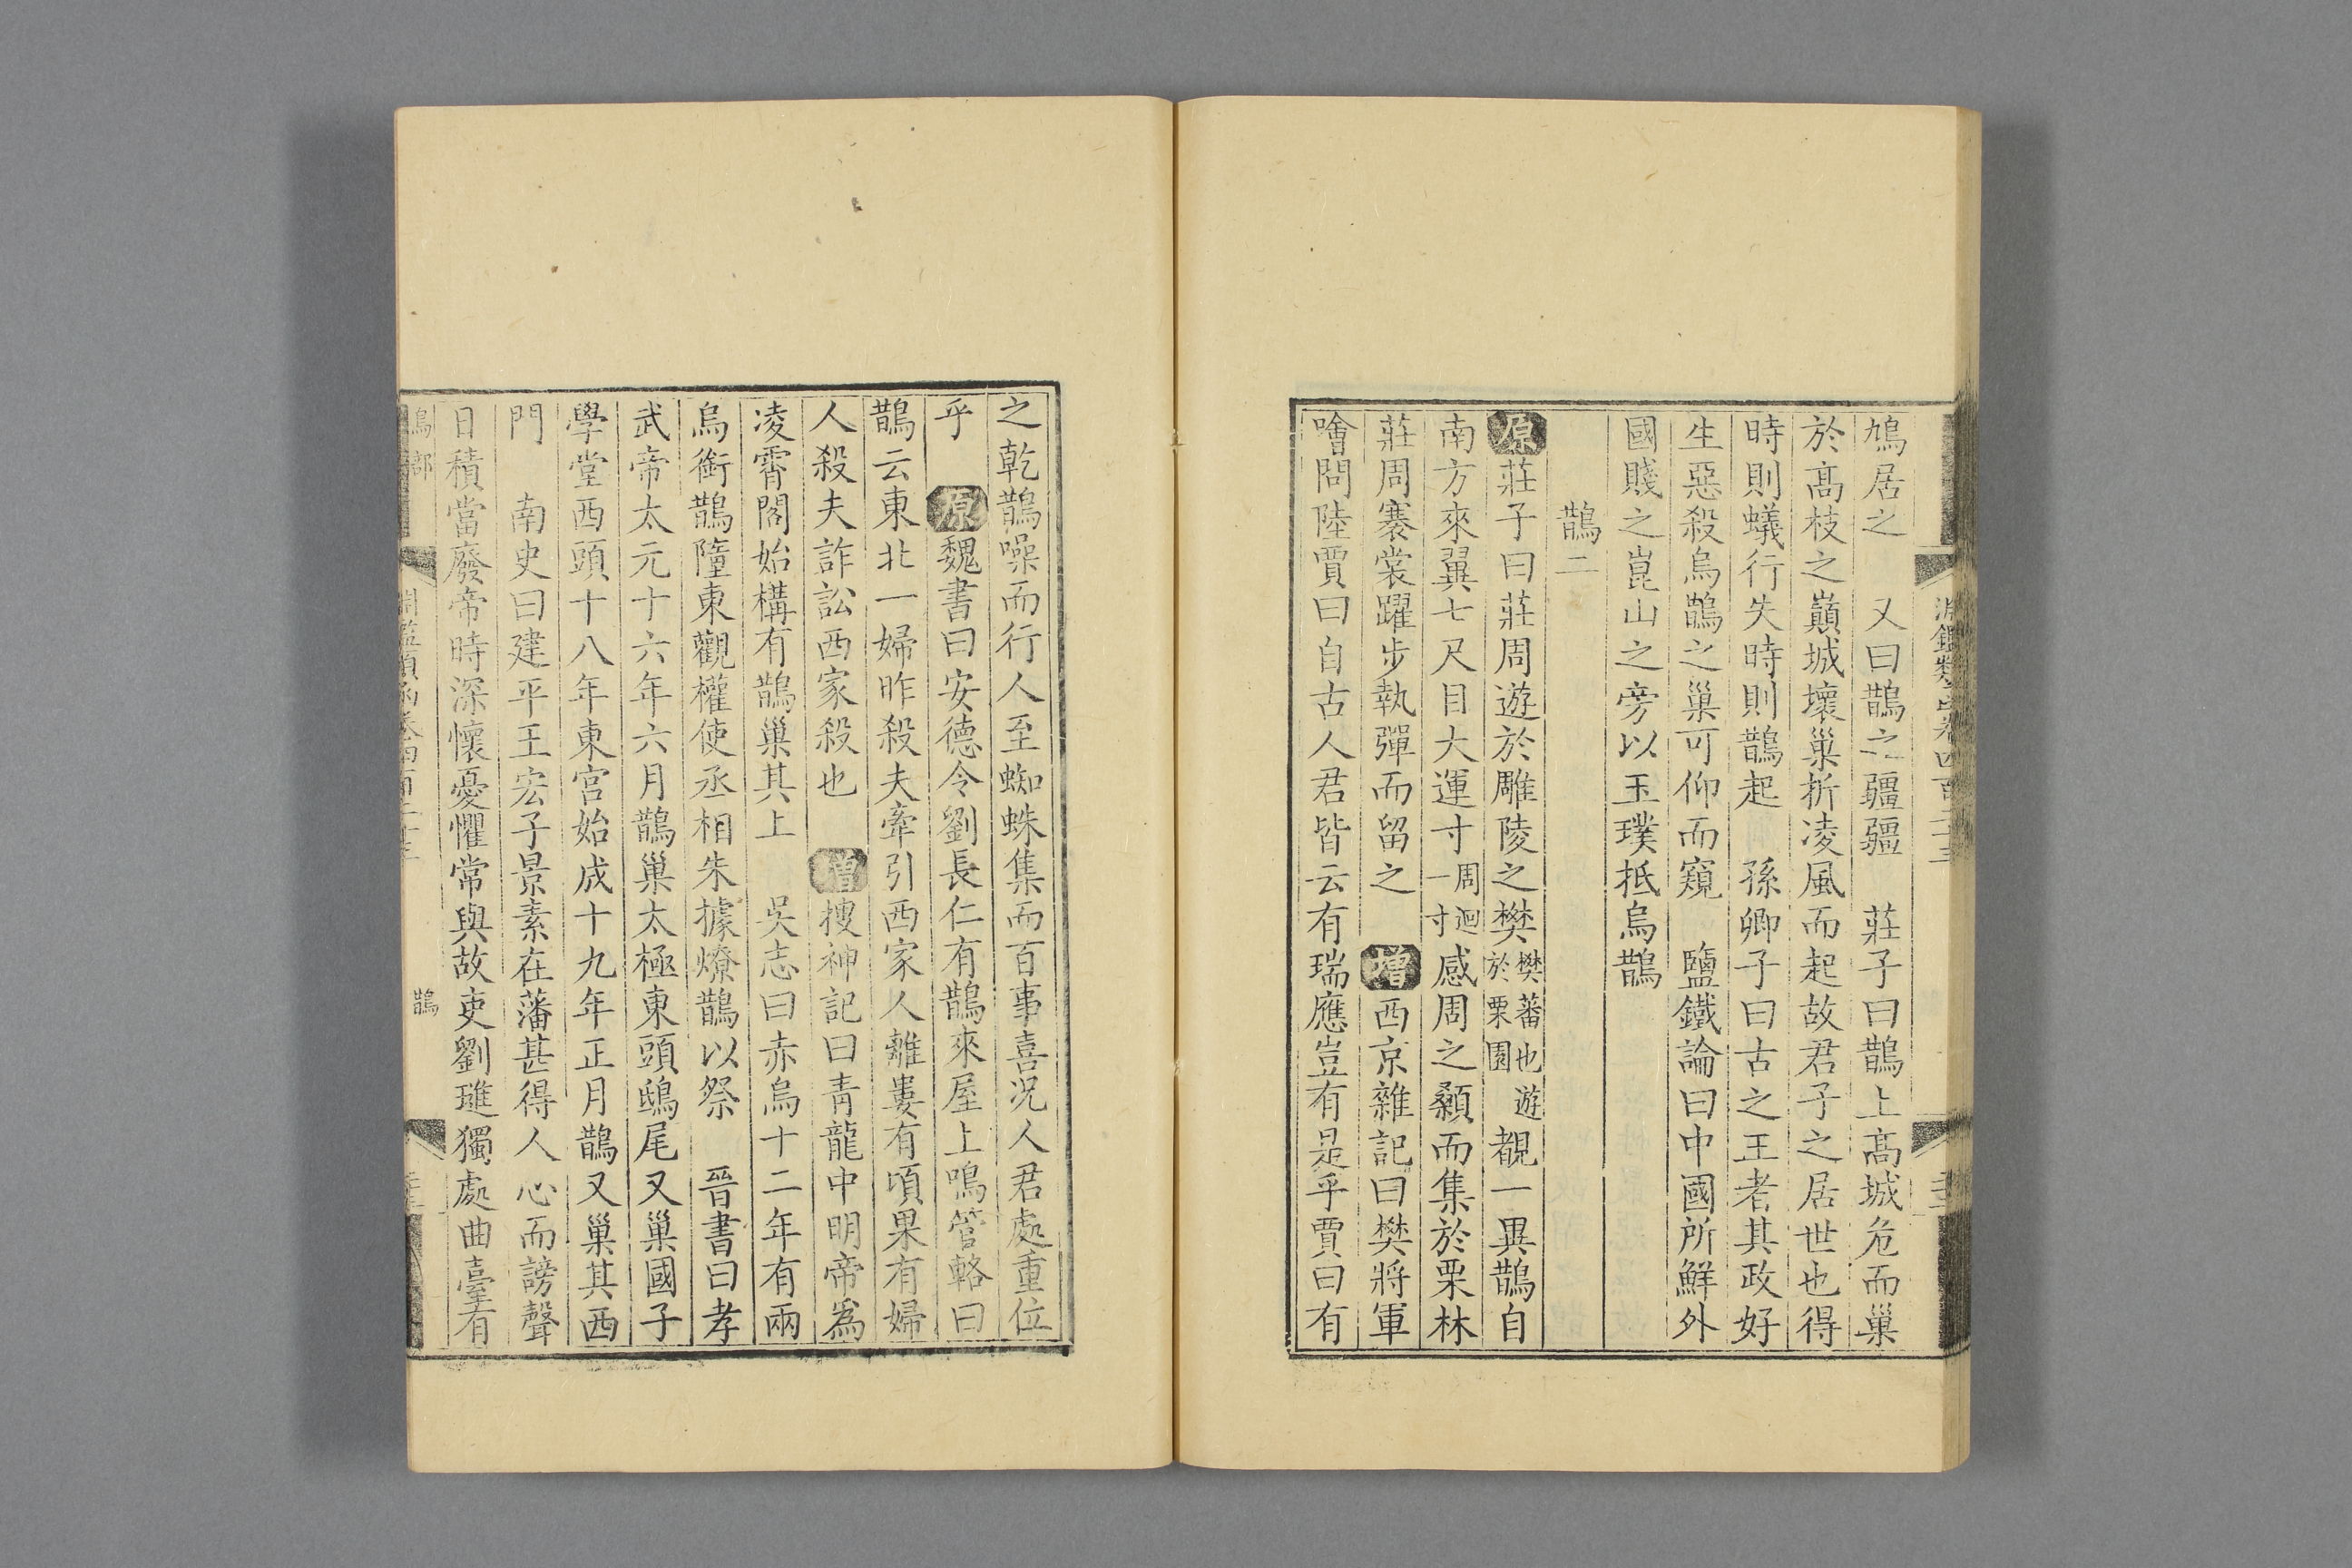 鳩居之　又曰鵲之疆疆　莊子曰鵲上髙城危而巢
於髙枝之巔城壞巢折凌風而起故君子之居世也得
時則蟻行失時則鵲起　孫卿子曰古之王者其政好
生惡殺烏鵲之巢可仰而窺　鹽鐵論曰中國所鮮外
國賤之崑山之旁以玉璞抵烏鵲
鵲二
原莊子曰莊周遊於雕陵之樊樊蕃也遊於栗園覩一異鵲自
南方來翼七尺目大運寸周迴一寸感周之顙而集於栗林
莊周褰裳躩步執彈而留之　增西京雜記曰樊將軍
噲問陸賈曰自古人君皆云有瑞應豈有是乎賈曰有
之乾鵲噪而行人至蜘蛛集而百事喜况人君處重位
乎　原魏書曰安德令劉長仁有鵲來屋上鳴管輅曰
鵲云東北一婦昨殺夫牽引西家人離婁有頃果有婦
人殺夫詐訟西家殺也　增搜神記曰青龍中明帝爲
凌霄閣始構有鵲巢其上　吳志曰赤烏十二年有兩
烏銜鵲墮東觀權使丞相朱據燎鵲以祭　晉書曰孝
武帝太元十六年六月鵲巢太極東頭鴟尾又巢國子
學堂西頭十八年東宮始成十九年正月鵲又巢其西
門　南史曰建平王宏子景素在藩甚得人心而謗聲
日積當廢帝時深懷憂懼常與故吏劉璡獨處曲臺有
鵲